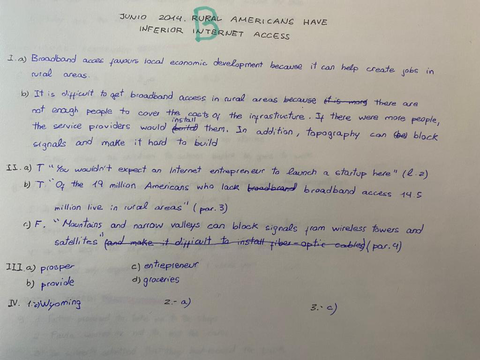 JUNIO 2014. RURAL AMERICANS HAVE
B
INFERIOR INTERNET ACCESS
I. a) Broadband acces favours local economic development because it can help create jobs in
rural areas.
b) It is difficult to get broadband access in rural areas because it is more there are
not enough people to cover the costs of the infrastructure. If there were more people,
install
the service providers would build them. In addition, topography can block
signals and make it hard to build
II. a) T "You wouldn't expect an Internet entrepreneur to launch a startup here" (l. 2)
b) T. "Of the 19 million Americans who lack broadband broadband access 14.5
million live in rural areas" (par. 3)
c) F. "Mountains and narrow valleys can block signals from wireless towers and
satellites" (and make it difficult to install fiber-optic cables) (par. 4)
III a) prosper c) entrepreneur
b) provide d) groceries
IV. Wyoming 2.- a) 3.- c)